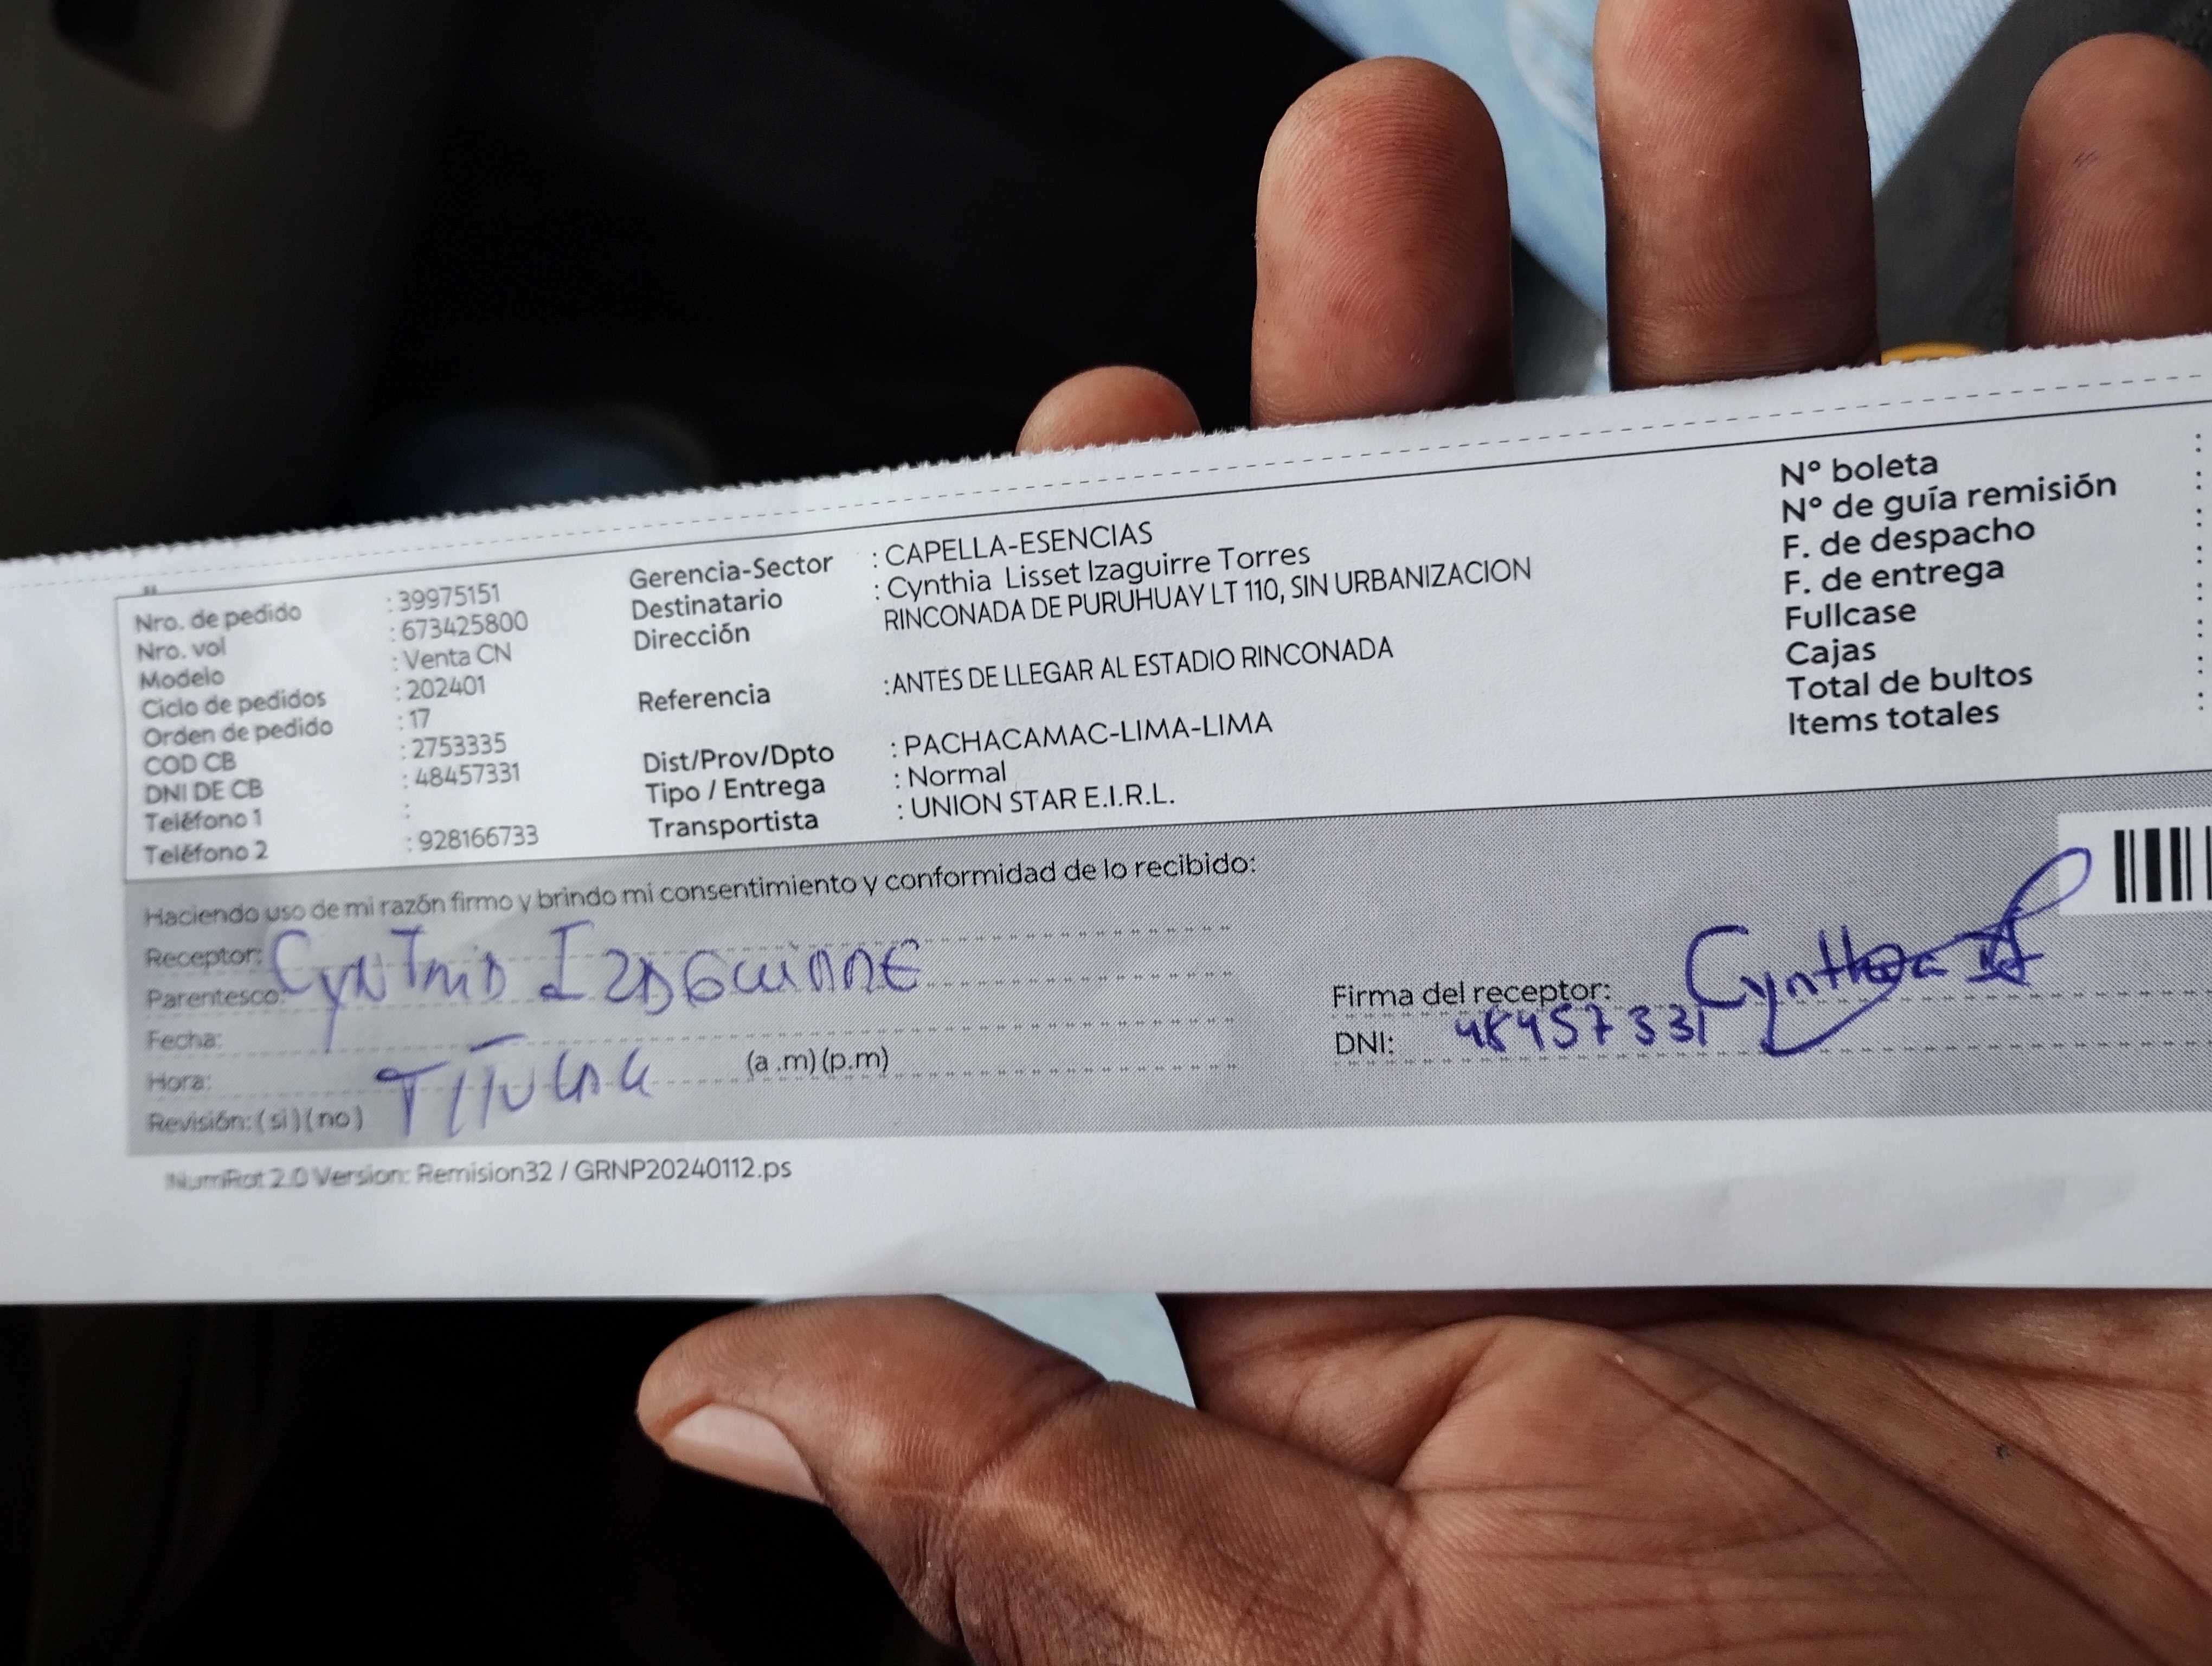 Nro. de pedido : 39975151
Nro. vol : 673425800
Modelo : Venta CN
Ciclo de pedidos : 202401
Orden de pedido : 17
COD CB : 2753335
DNI DE CB : 48457331
Teléfono 1 :
Teléfono 2 : 928166733
Gerencia-Sector : CAPELLA-ESENCIAS
Destinatario : Cynthia Lisset Izaguirre Torres
Dirección RINCONADA DE PURUHUAY LT 110, SIN URBANIZACION
Referencia :ANTES DE LLEGAR AL ESTADIO RINCONADA
Dist/Prov/Dpto : PACHACAMAC-LIMA-LIMA
Tipo / Entrega : Normal
Transportista : UNION STAR E.I.R.L.
N° boleta :
N° de guía remisión :
F. de despacho :
F. de entrega :
Fullcase :
Cajas :
Total de bultos :
Items totales :
Haciendo uso de mi razón firmo y brindo mi consentimiento y conformidad de lo recibido:
Receptor: Cynthia Izaguirre
Parentesco:
Fecha:
Hora: Titular (a .m) (p.m)
Revisión: ( si ) ( no )
Firma del receptor: Cynthia
DNI: 48457331
NumRot 2.0 Version: Remision32 / GRNP20240112.ps